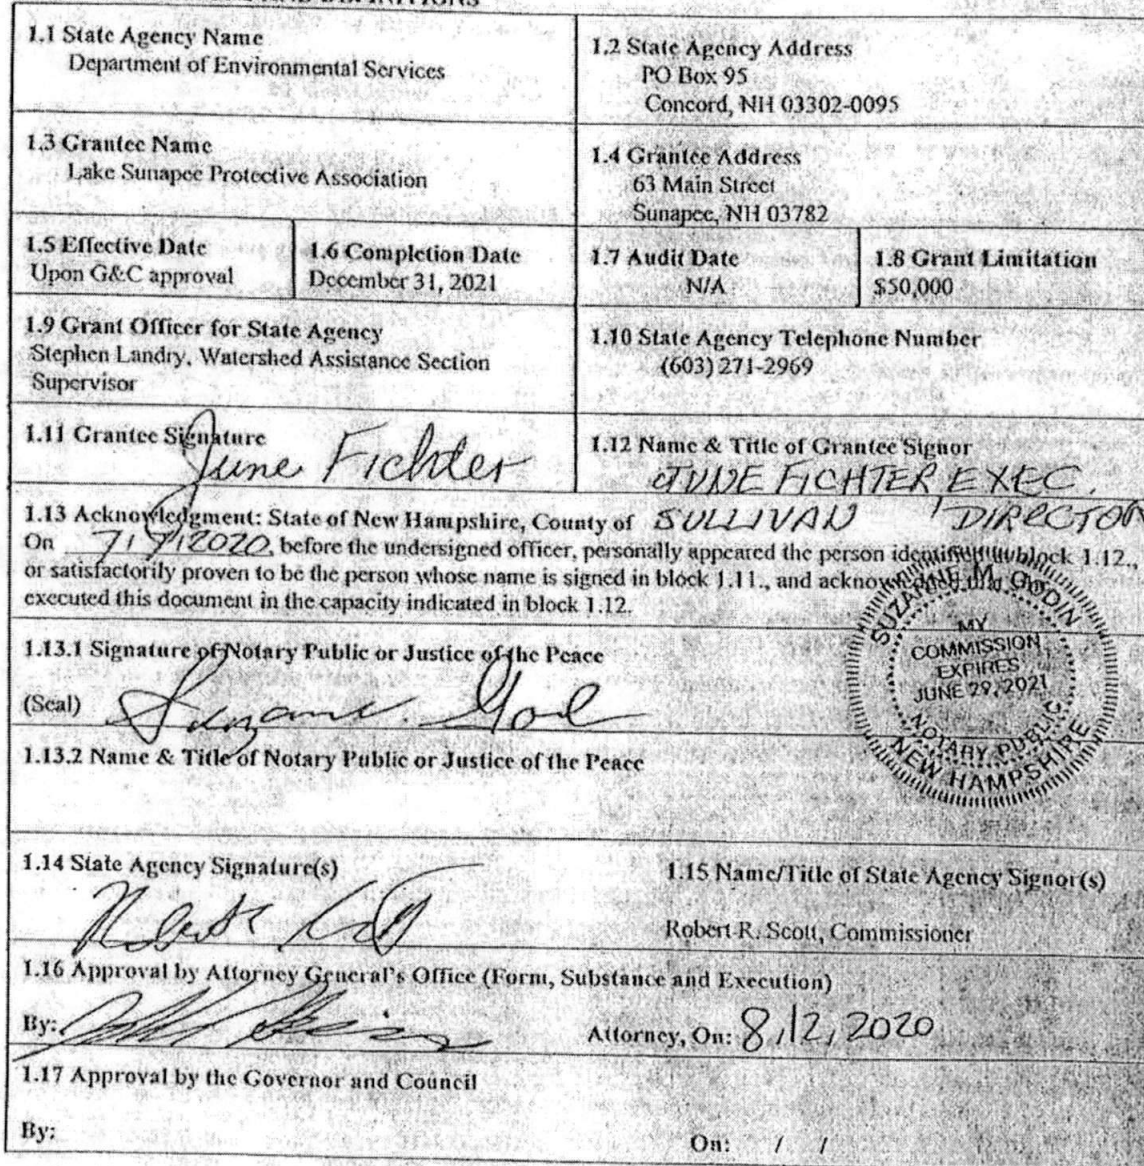 1.1 State Agency Name
Department of Environmental Services
1.2 State Agency Address
PO Box 95
Concord, NH 03302-0095
1.3 Grantee Name
Lake Sunapee Protective Association
1.4 Grantee Address
63 Main Street
Sunapee, NH 03782
1.5 Effective Date
Upon G&C approval
1.6 Completion Date
December 31, 2021
1.7 Audit Date
N/A
1.8 Grant Limitation
$50,000
1.9 Grant Officer for State Agency
Stephen Landry, Watershed Assistance Section
Supervisor
1.10 State Agency Telephone Number
(603) 271-2969
1.11 Grantee Signature
June Fichter
1.12 Name & Title of Grantee Signor
JUNE FICHTER, EXEC.
DIRECTOR
1.13 Acknowledgment: State of New Hampshire, County of SULLIVAN
On 7/ /2020, before the undersigned officer, personally appeared the person block 1.12.,
or satisfactorily proven to be the person whose name is signed in block 1.11., and
executed this document in the capacity indicated in block 1.12.
SUZANNE M. GODIN
MY
COMMISSION
EXPIRES
JUNE 29, 2021
NOTARY PUBLIC
NEW HAMPSHIRE
1.13.1 Signature of Notary Public or Justice of the Peace
(Seal)
1.13.2 Name & Title of Notary Public or Justice of the Peace
1.14 State Agency Signature(s)
1.15 Name/Title of State Agency Signor(s)
Robert R. Scott, Commissioner
1.16 Approval by Attorney General's Office (Form, Substance and Execution)
By:
Attorney, On: 8/12/2020
1.17 Approval by the Governor and Council
By:
On: / /